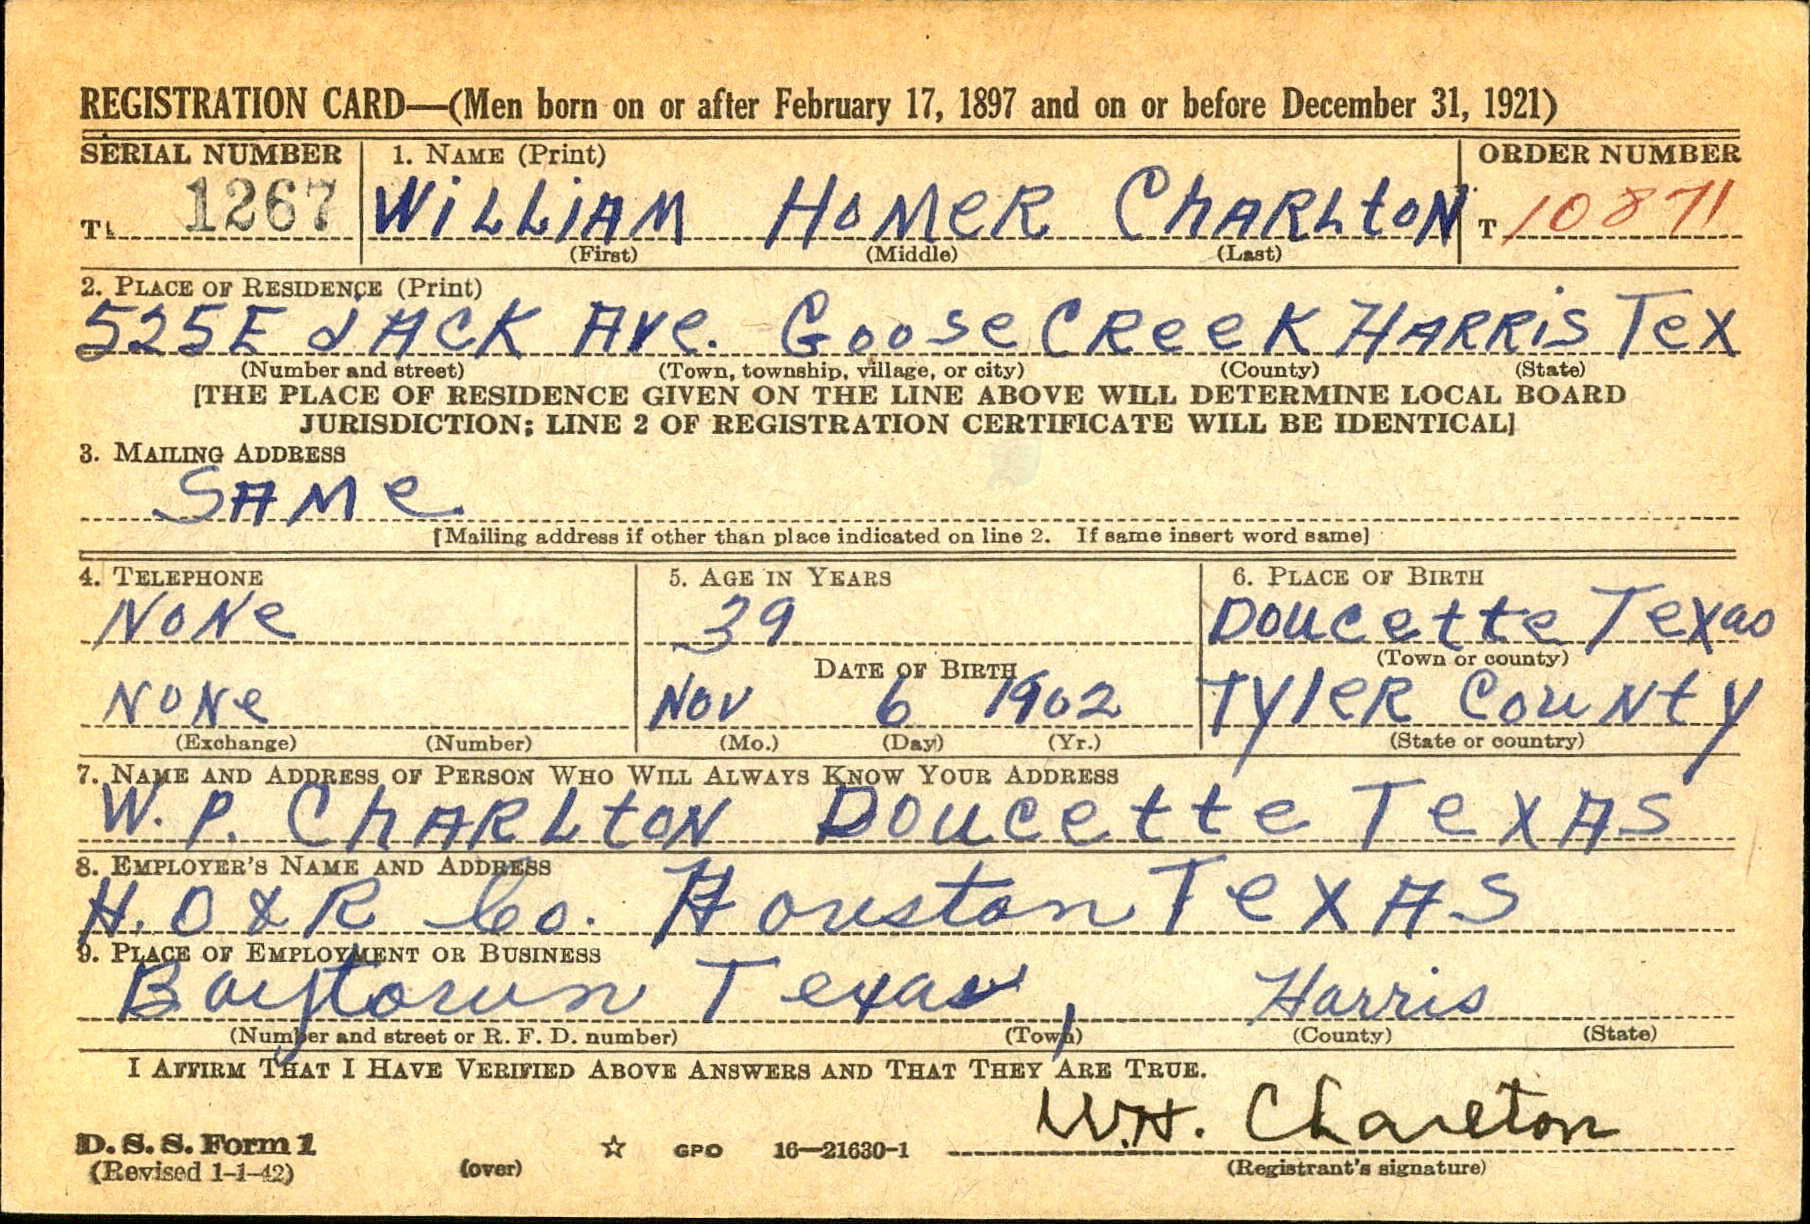 REGISTRATION CARD—(Men born on or after February 17, 1897 and on or before December 31, 1921)
SERIAL NUMBER 1. NAME (Print) ORDER NUMBER
T 1267 WiLLiAM HoMeR ChARLtoN T 10871
(First) (Middle) (Last)
2. PLACE OF RESIDENCE (Print)
525 E JACK AVe. GooseCReeK HARRiS TeX
(Number and street) (Town, township, village, or city) (County) (State)
[THE PLACE OF RESIDENCE GIVEN ON THE LINE ABOVE WILL DETERMINE LOCAL BOARD
JURISDICTION; LINE 2 OF REGISTRATION CERTIFICATE WILL BE IDENTICAL]
3. MAILING ADDRESS
SAMe
[Mailing address if other than place indicated on line 2. If same insert word same]
4. TELEPHONE 5. AGE IN YEARS 6. PLACE OF BIRTH
NoNe 39 Doucette Texas
(Town or county)
DATE OF BIRTH
NoNe Nov 6 1902 TyleR CouNty
(Exchange) (Number) (Mo.) (Day) (Yr.) (State or country)
7. NAME AND ADDRESS OF PERSON WHO WILL ALWAYS KNOW YOUR ADDRESS
W. P. ChARLtoN Doucette TeXAS
8. EMPLOYER'S NAME AND ADDRESS
H. O & R Co. Houston TeXAS
9. PLACE OF EMPLOYMENT OR BUSINESS
Baytown Texas, Harris
(Number and street or R. F. D. number) (Town) (County) (State)
I AFFIRM THAT I HAVE VERIFIED ABOVE ANSWERS AND THAT THEY ARE TRUE.
W.H. Charlton
D. S. S. Form 1 ☆ GPO 16—21630-1
(Revised 1-1-42) (over) (Registrant's signature)